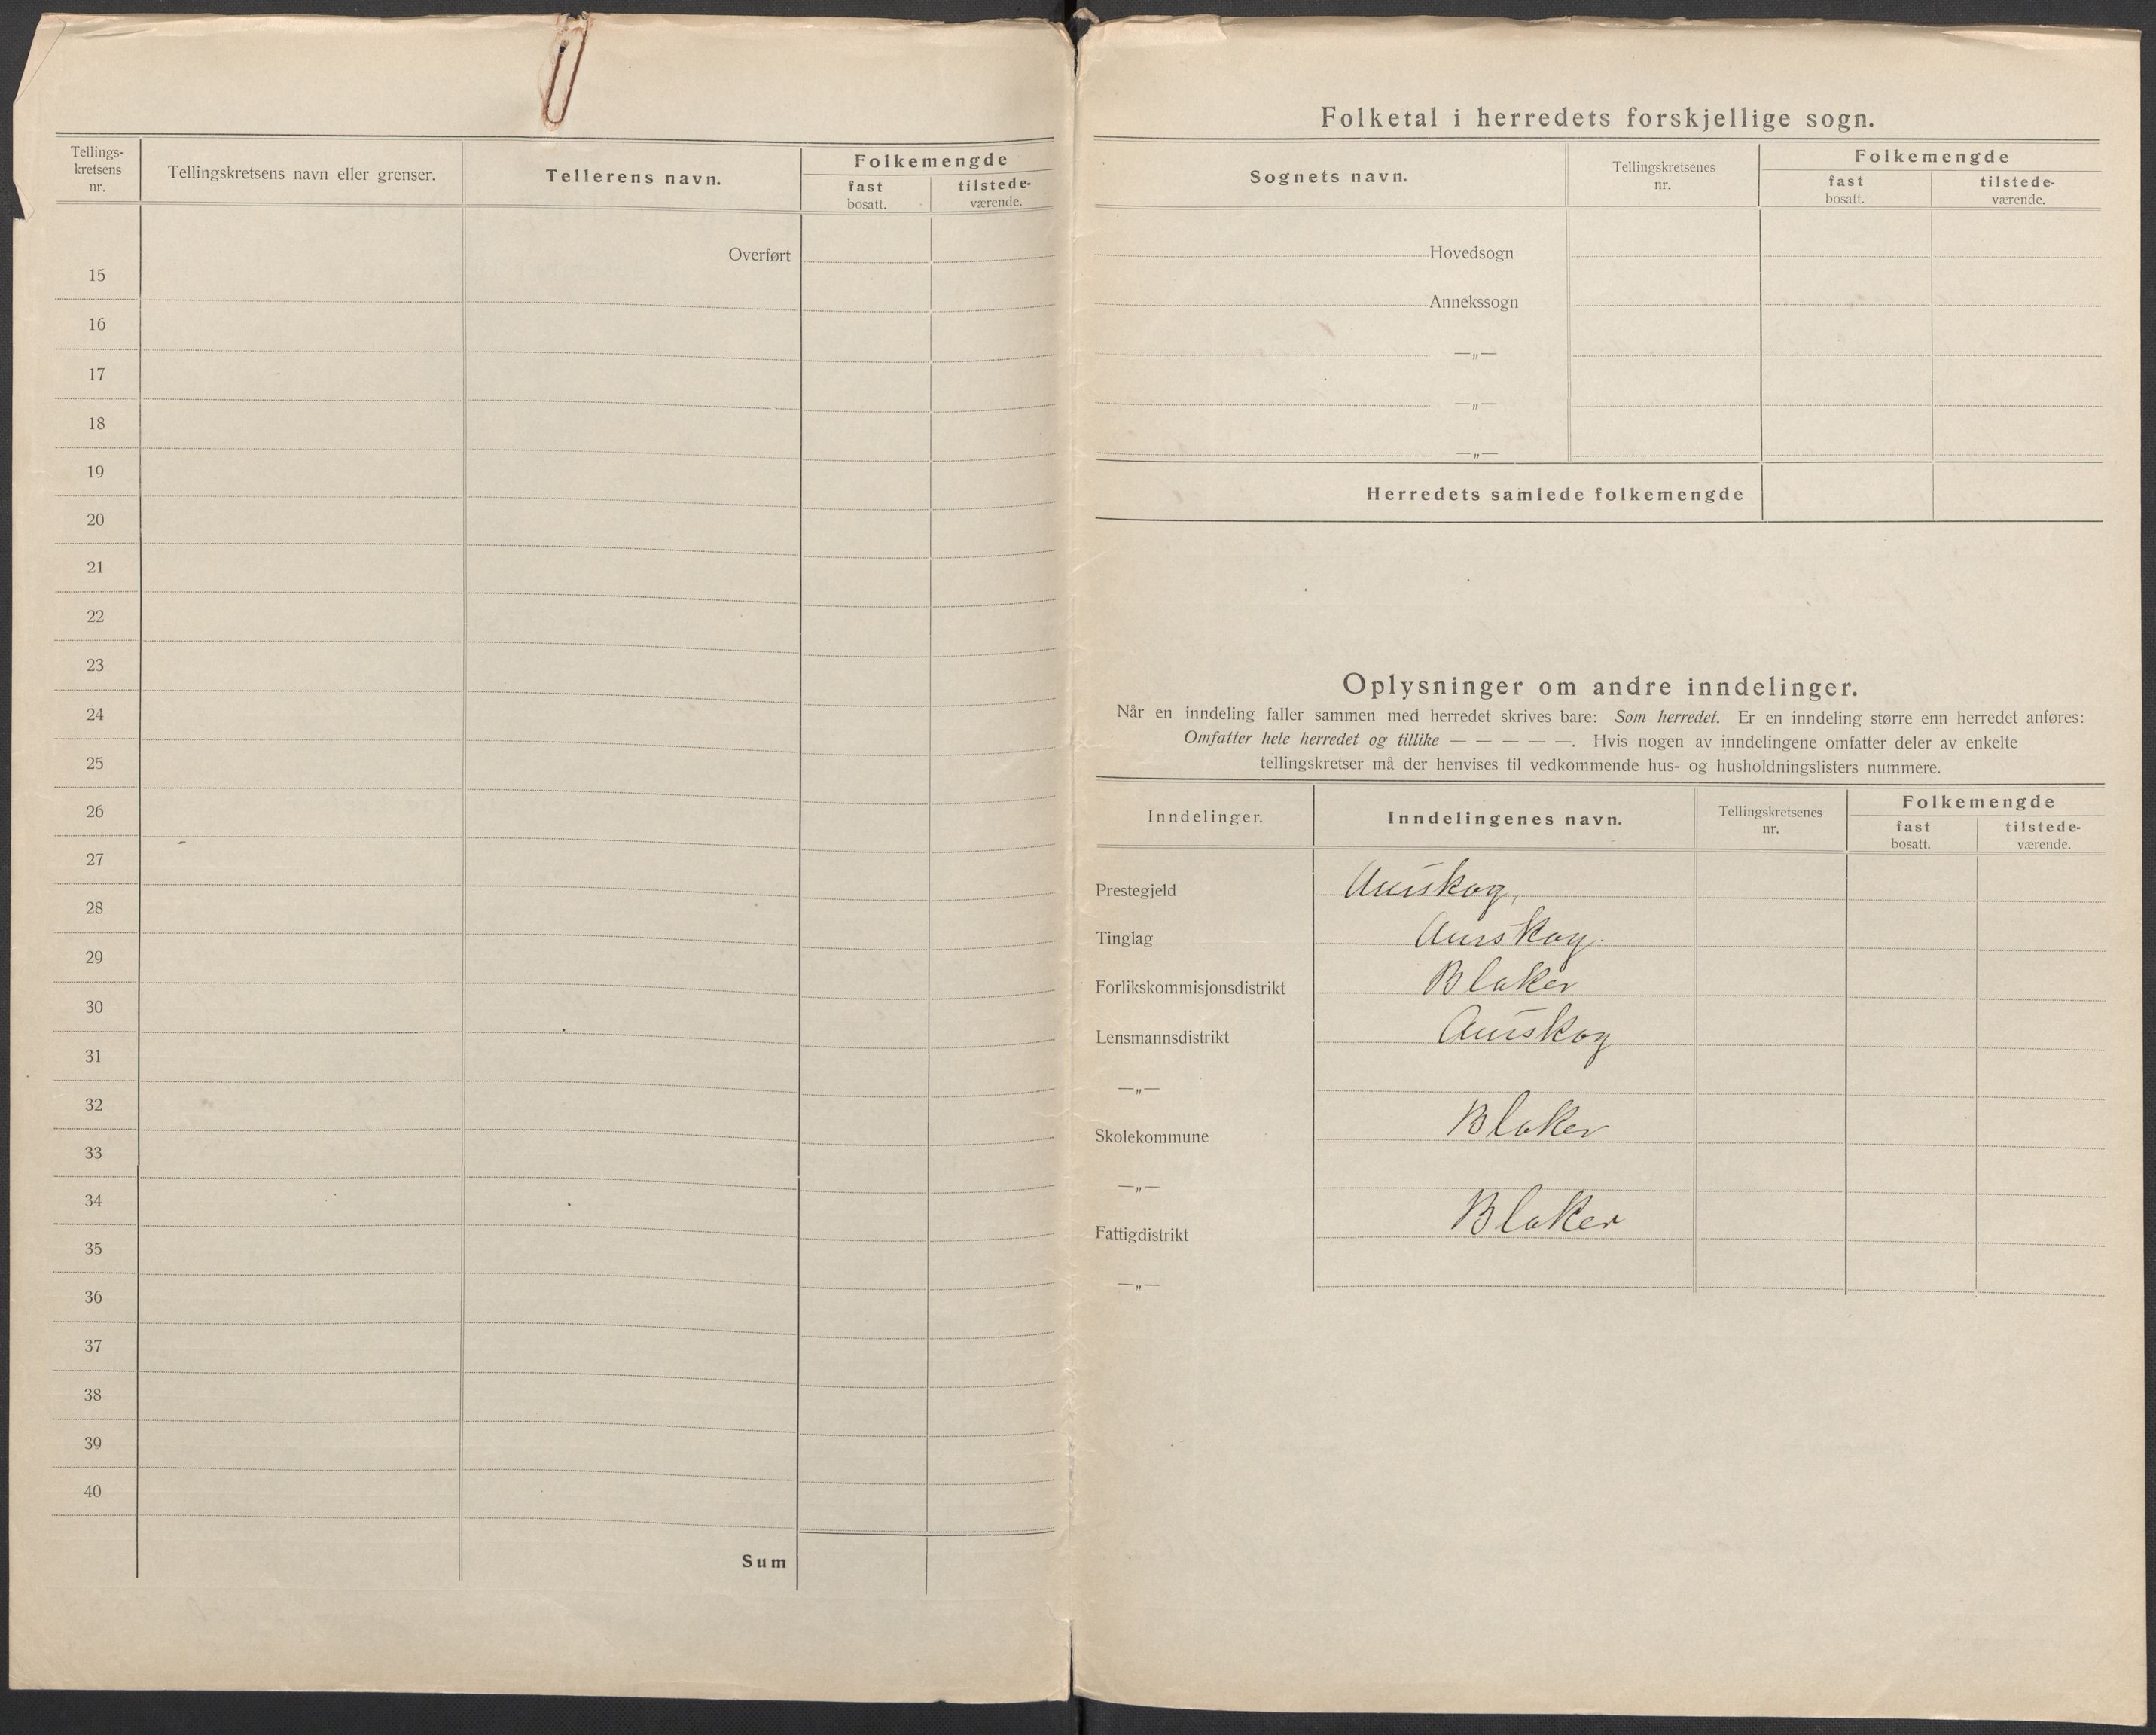 Tellings-
kretsens
nr.
Tellingskretsens navn eller grenser.
Tellerens navn.
Folkemengde
fast
bosatt.
tilstede-
værende.
Overført
15
16
17
18
19
20
21
22
23
24
25
26
27
28
29
30
31
32
33
34
35
36
37
38
39
40
Sum
Folketal i herredets forskjellige sogn.
Sognets navn.
Tellingskretsenes
nr.
Folkemengde
fast
bosatt.
tilstede-
værende.
Hovedsogn
Annekssogn
—„—
—„—
—„—
Herredets samlede folkemengde
Oplysninger om andre inndelinger.
Når en inndeling faller sammen med herredet skrives bare: Som herredet. Er en inndeling større enn herredet anføres:
Omfatter hele herredet og tillike — — — — —. Hvis nogen av inndelingene omfatter deler av enkelte
tellingskretser må der henvises til vedkommende hus- og husholdningslisters nummere.
Inndelinger.
Inndelingenes navn.
Tellingskretsenes
nr.
Folkemengde
fast
bosatt.
tilstede-
værende.
Prestegjeld Aurskog,
Tinglag Aurskog.
Forlikskommisjonsdistrikt Blaker
Lensmannsdistrikt Aurskog
—„—
Skolekommune Blaker
—„—
Fattigdistrikt Blaker
—„—